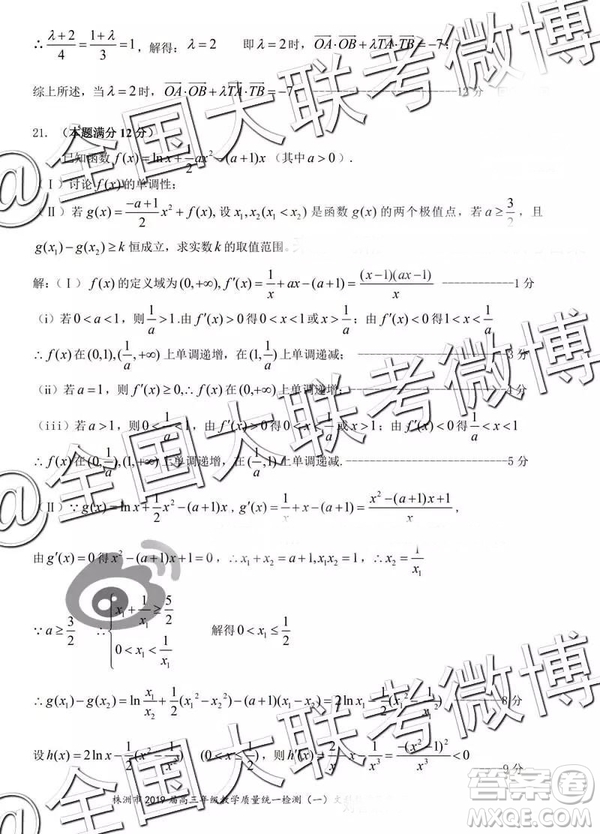 ∴ (λ+2)/4 = (1+λ)/3 = 1，解得：λ=2 即λ=2时，OA·OB+λTA·TB=-7；
综上所述，当λ=2时，OA·OB+λTA·TB=-7 ----12分
21. （本题满分12分）
已知函数 f(x)=lnx+1/2 ax²-(a+1)x（其中a>0）.
（Ⅰ）讨论f(x)的单调性；
（Ⅱ）若 g(x)=(-a+1)/2 x²+f(x), 设 x₁,x₂(x₁<x₂) 是函数 g(x) 的两个极值点，若 a≥3/2 ，且
g(x₁)-g(x₂)≥k 恒成立，求实数k的取值范围。
解：（Ⅰ）f(x)的定义域为(0,+∞), f′(x)=1/x+ax-(a+1)=(x-1)(ax-1)/x ----1分
（i）若0<a<1，则1/a>1.由f′(x)>0得0<x<1或x>1/a；由f′(x)<0得1<x<1/a
∴f(x)在(0,1),(1/a,+∞)上单调递增，在(1,1/a)上单调递减； ----3分
（ii）若a=1，则f′(x)≥0,∴f(x)在(0,+∞)上单调递增 ----4分
（iii）若a>1，则0<1/a<1，由f′(x)>0得0<x<1/a或x>1；由f′(x)<0得1/a<x<1
∴f(x)在(0,1/a),(1,+∞)上单调递增，在(1/a,1)上单调递减. ----5分
（Ⅱ）∵g(x)=lnx+1/2 x²-(a+1)x，g′(x)=1/x+x-(a+1)=(x²-(a+1)x+1)/x，
由g′(x)=0得x²-(a+1)x+1=0，∴x₁+x₂=a+1,x₁x₂=1，∴x₂=1/x₁
∵a≥3/2 ∴{x₁+1/x₁≥5/2 0<x₁<1/x₁ 解得0<x₁≤1/2
∴g(x₁)-g(x₂)=ln x₁/x₂+1/2(x₁²-x₂²)-(a+1)(x₁-x₂)=2lnx₁- ----8分
设h(x)=2lnx- (0<x≤1/2)，则h′(x)=2/x-x-1/x³=-(x²-1)²/x³<0
----9分
株洲市2019届高三年级教学质量统一检测（一）
@全国大联考微博
@全国大联考微博
@全国大联考微博
答案圈
MXQE.COM